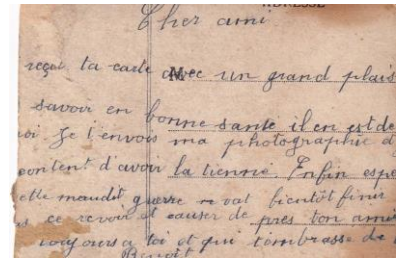 ADRESSE
Cher ami
reçat ta carte avec un grand plais
M
savoir en bonne sante il en est de
oi Je t'envois ma photographie d
content d'avoir la tienne. Enfin espe
ette maudit guerre vat bientôt finir
ce revoir et causer de pres ton ami
toujours a toi et qui t'embrasse de
Benoit